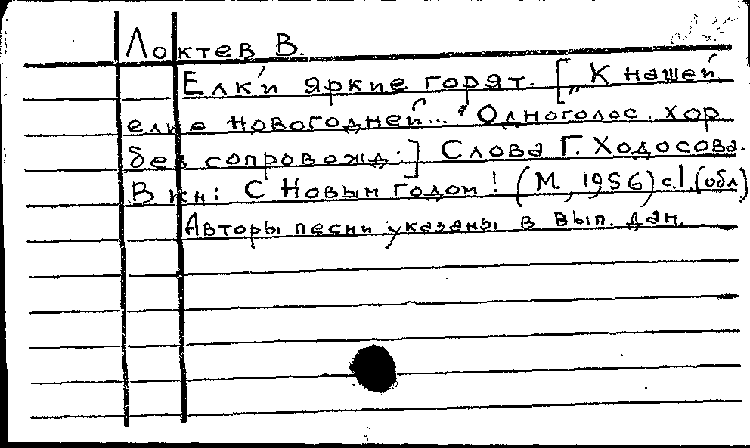 Локтев В.
Елки яркие горят. [„К нашей
елке новогодней..." Одноголос. хор
без сопровожд.] Слова Г. Ходосова.
В кн: С Новым годом! (М, 1956) с.1.(обл)
Авторы песни указаны в вып. дан.